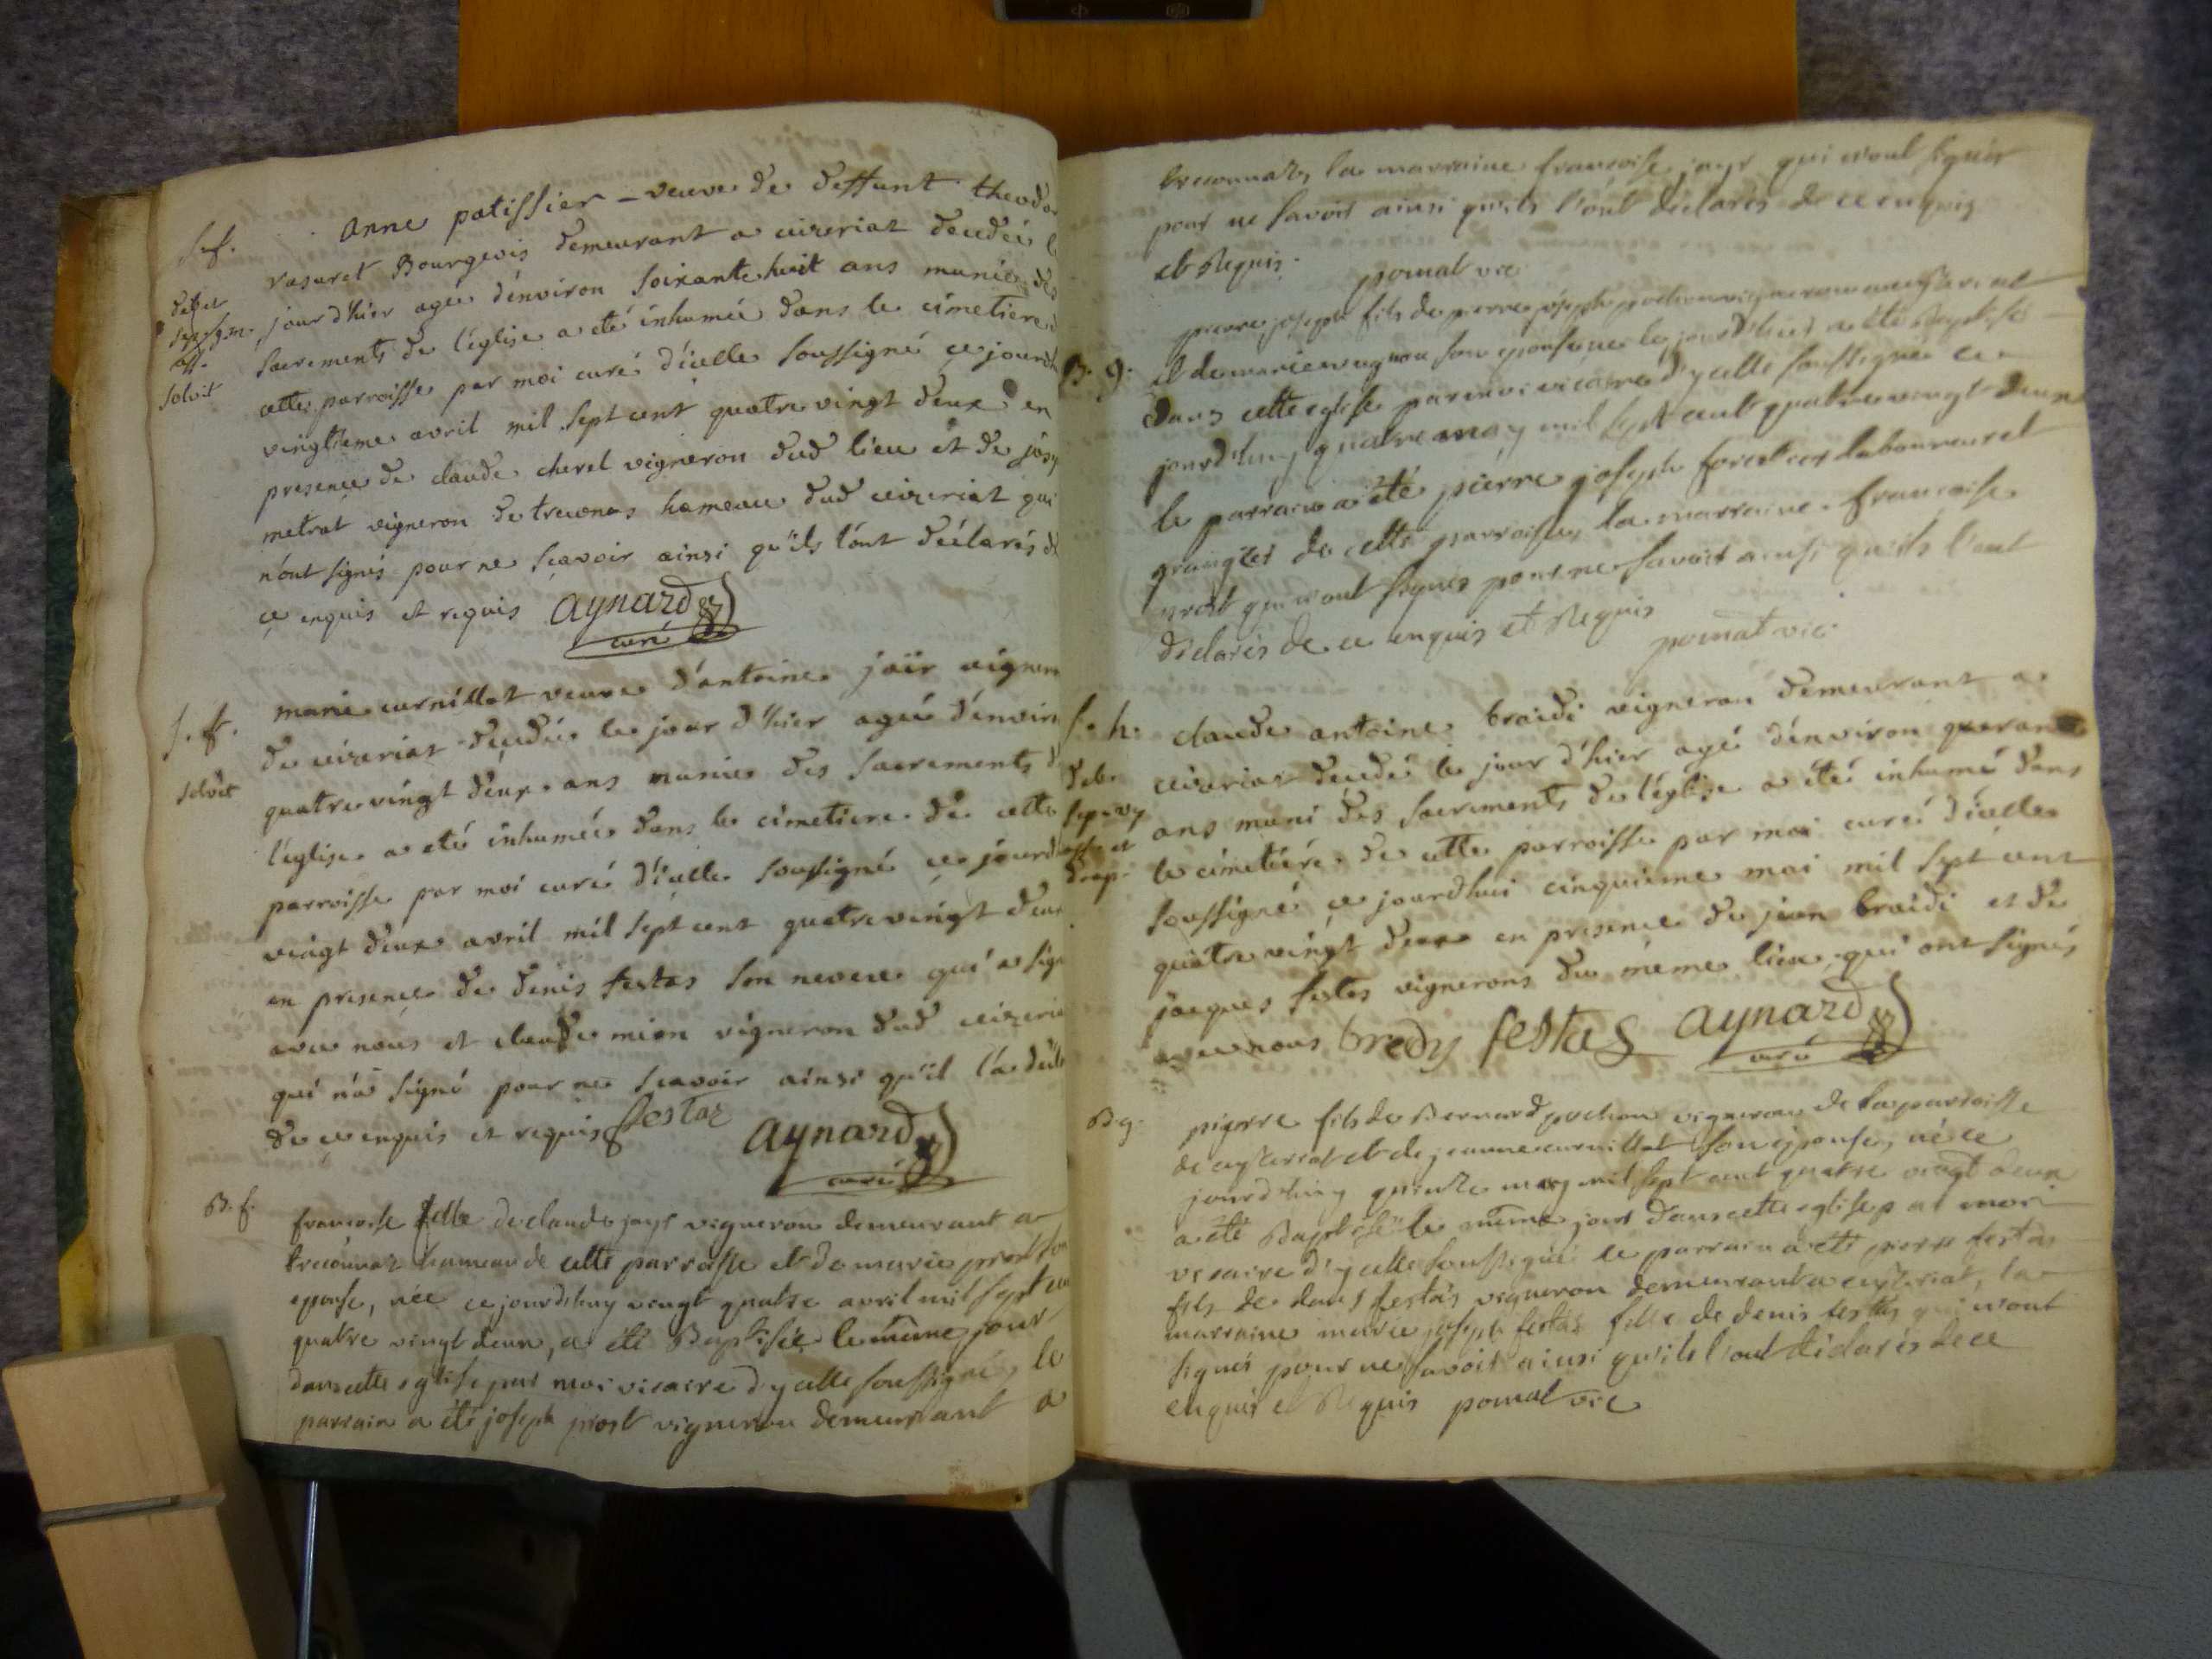 S. f.
anne patissier - veuve de deffunt theodo
vasuret Bourgeois demeurant a ceizeriat decedée l
debet
sep. g. m.
off.
solvit
jour d'hier agée d'environ soixante huit ans munie des
sacrements de l'église a eté inhumée dans le cimetiere d
cette parroisse par moi curé d'icelle soussigné ce jourd
vingtieme avril mil sept cent quatre vingt deux en
presence de claude cherel vigneron dud lieu et de jose
metrat vigneron de treconas hameau dud ceizeriat qui
n'ont signés pour ne scavoir ainsi qu'ils l'ont déclarés de
ce enquis et requis aynard
curé
S. f.
solvit
marie curnillat veuve d'antoine jaïr vigneron
de ceizeriat decedée le jour d'hier agée d'environ
quatre vingt deux ans munie des sacrements d
l'église a eté inhumée dans le cimetiere de cette
parroisse par moi curé d'icelle soussigné ce jourd
vingt deux avril mil sept cent quatre vingt deux
en presence de denis festas son neveu qui a sign
avec nous et claude mion vigneron dud ceizeria
qui n'a signé pour ne scavoir ainsi qu'il l'a décla
de ce enquis et requis festas aynard
curé
B. f.
francoise fille de claude jayr vigneron demeurant a
treconnaz hameau de cette parroisse et de marie prost son
epouse, née ce jourdhuy vingt quatre avril mil sept cen
quatre vingt deux, a été Baptisée le même jour
dans cette eglise par moi vicaire d'ycelle soussigné, le
parrain a été joseph prost vigneron demeurant a
treconnaz, la marraine francoise jayr qui n'ont signés
pour ne savoir ainsi qu'ils l'ont déclarés de ce enquis
et Requis. pomat vic
B. g.
pierre joseph fils de pierre joseph pochon vigneron a ceyzeriat
et de marie son epouse né le jour d'hier a été Baptisé
dans cette eglise par moi vicaire d'ycelle soussigné ce
jourdhuy quatre may mil sept cent quatre vingt deux
le parrain a été pierre joseph forestier laboureur et
granger de cette parroisse, la marraine francoise
qui n'ont signés pour ne savoir ainsi qu'ils l'ont
déclarés de ce enquis et Requis pomat vic.
S. h.
deb.
sep. vy
off. et
drap.
claude antoine braidi vigneron demeurant a
ceizeriat decedé le jour d'hier agé d'environ quarante
ans muni des sacrements de l'église a été inhumé dans
le cimetiére de cette parroisse par moi curé d'icelle
soussigné ce jourdhui cinquieme mai mil sept cent
quatre vingt deux en presence de jean braidi et de
jacques festas vignerons du même lieu qui ont signés
avec nous bredy festas aynard
curé
B. g.
pierre fils de Bernard pochon vigneron de la parroisse
de ceyzeriat et de jeanne curnillat son epouse, né ce
jourdhuy quinze may mil sept cent quatre vingt deux
a été Baptisé le même jour dans cette eglise par moi
vicaire d'ycelle soussigné le parrain a été pierre festas
fils de festas vigneron demeurant a ceyzeriat, la
marraine marie joseph festas fille de denis festas qui n'ont
signés pour ne savoir ainsi qu'ils l'ont déclarés de ce
enquis et Requis pomat vic